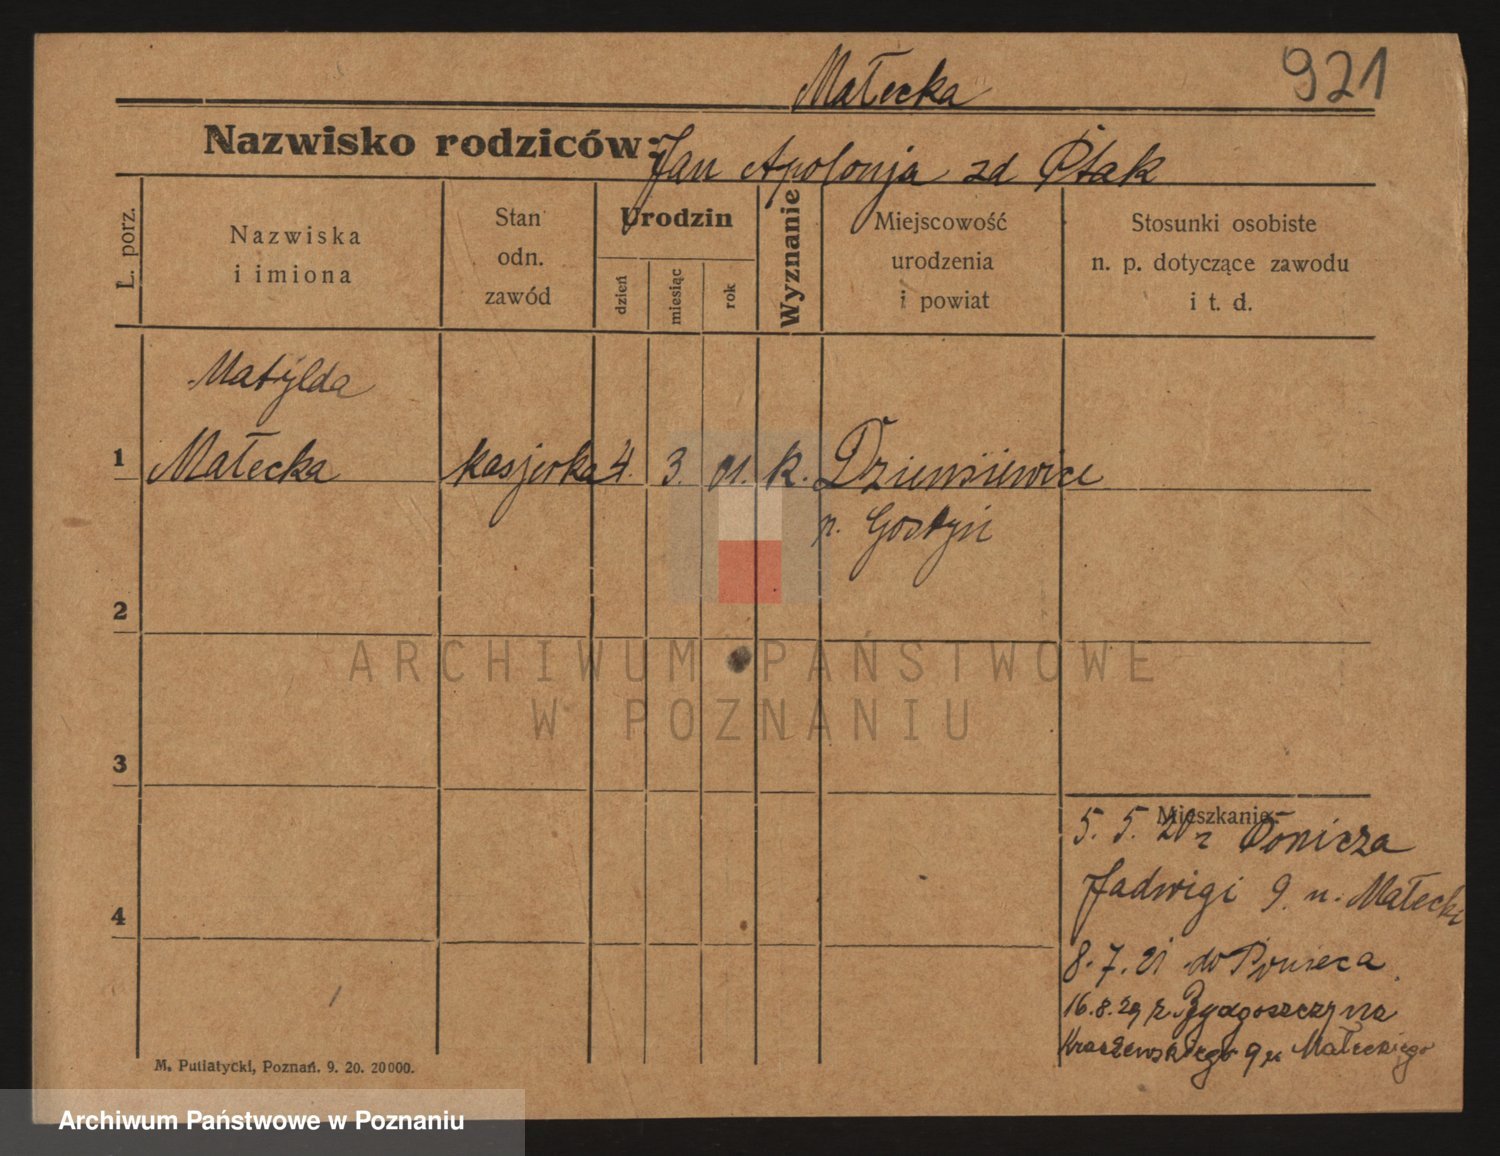 921
Małecka
Nazwisko rodziców: Jan Apolonja zd Ptak
L. porz.
Nazwiska
i imiona
Stan
odn.
zawód
Urodzin
dzień
miesiąc
rok
Wyznanie
Miejscowość
urodzenia
i powiat
Stosunki osobiste
n. p. dotyczące zawodu
i t. d.
Matylda
1 Małecka kasjerka 4. 3. 01. k. Dzięwiewice
p. Gostyń
2
ARCHIWUM PAŃSTWOWE
W POZNANIU
3
Mieszkanie
5. 5. 20 z Ponieza
Jadwigi 9. u. Małecki
4
8. 7. 21 do Ponieca
16.8.29 z Bydgoszczy na
Kraszewskiego 9 u Małeckiego
M. Putiatycki, Poznań. 9. 20. 20000.
Archiwum Państwowe w Poznaniu